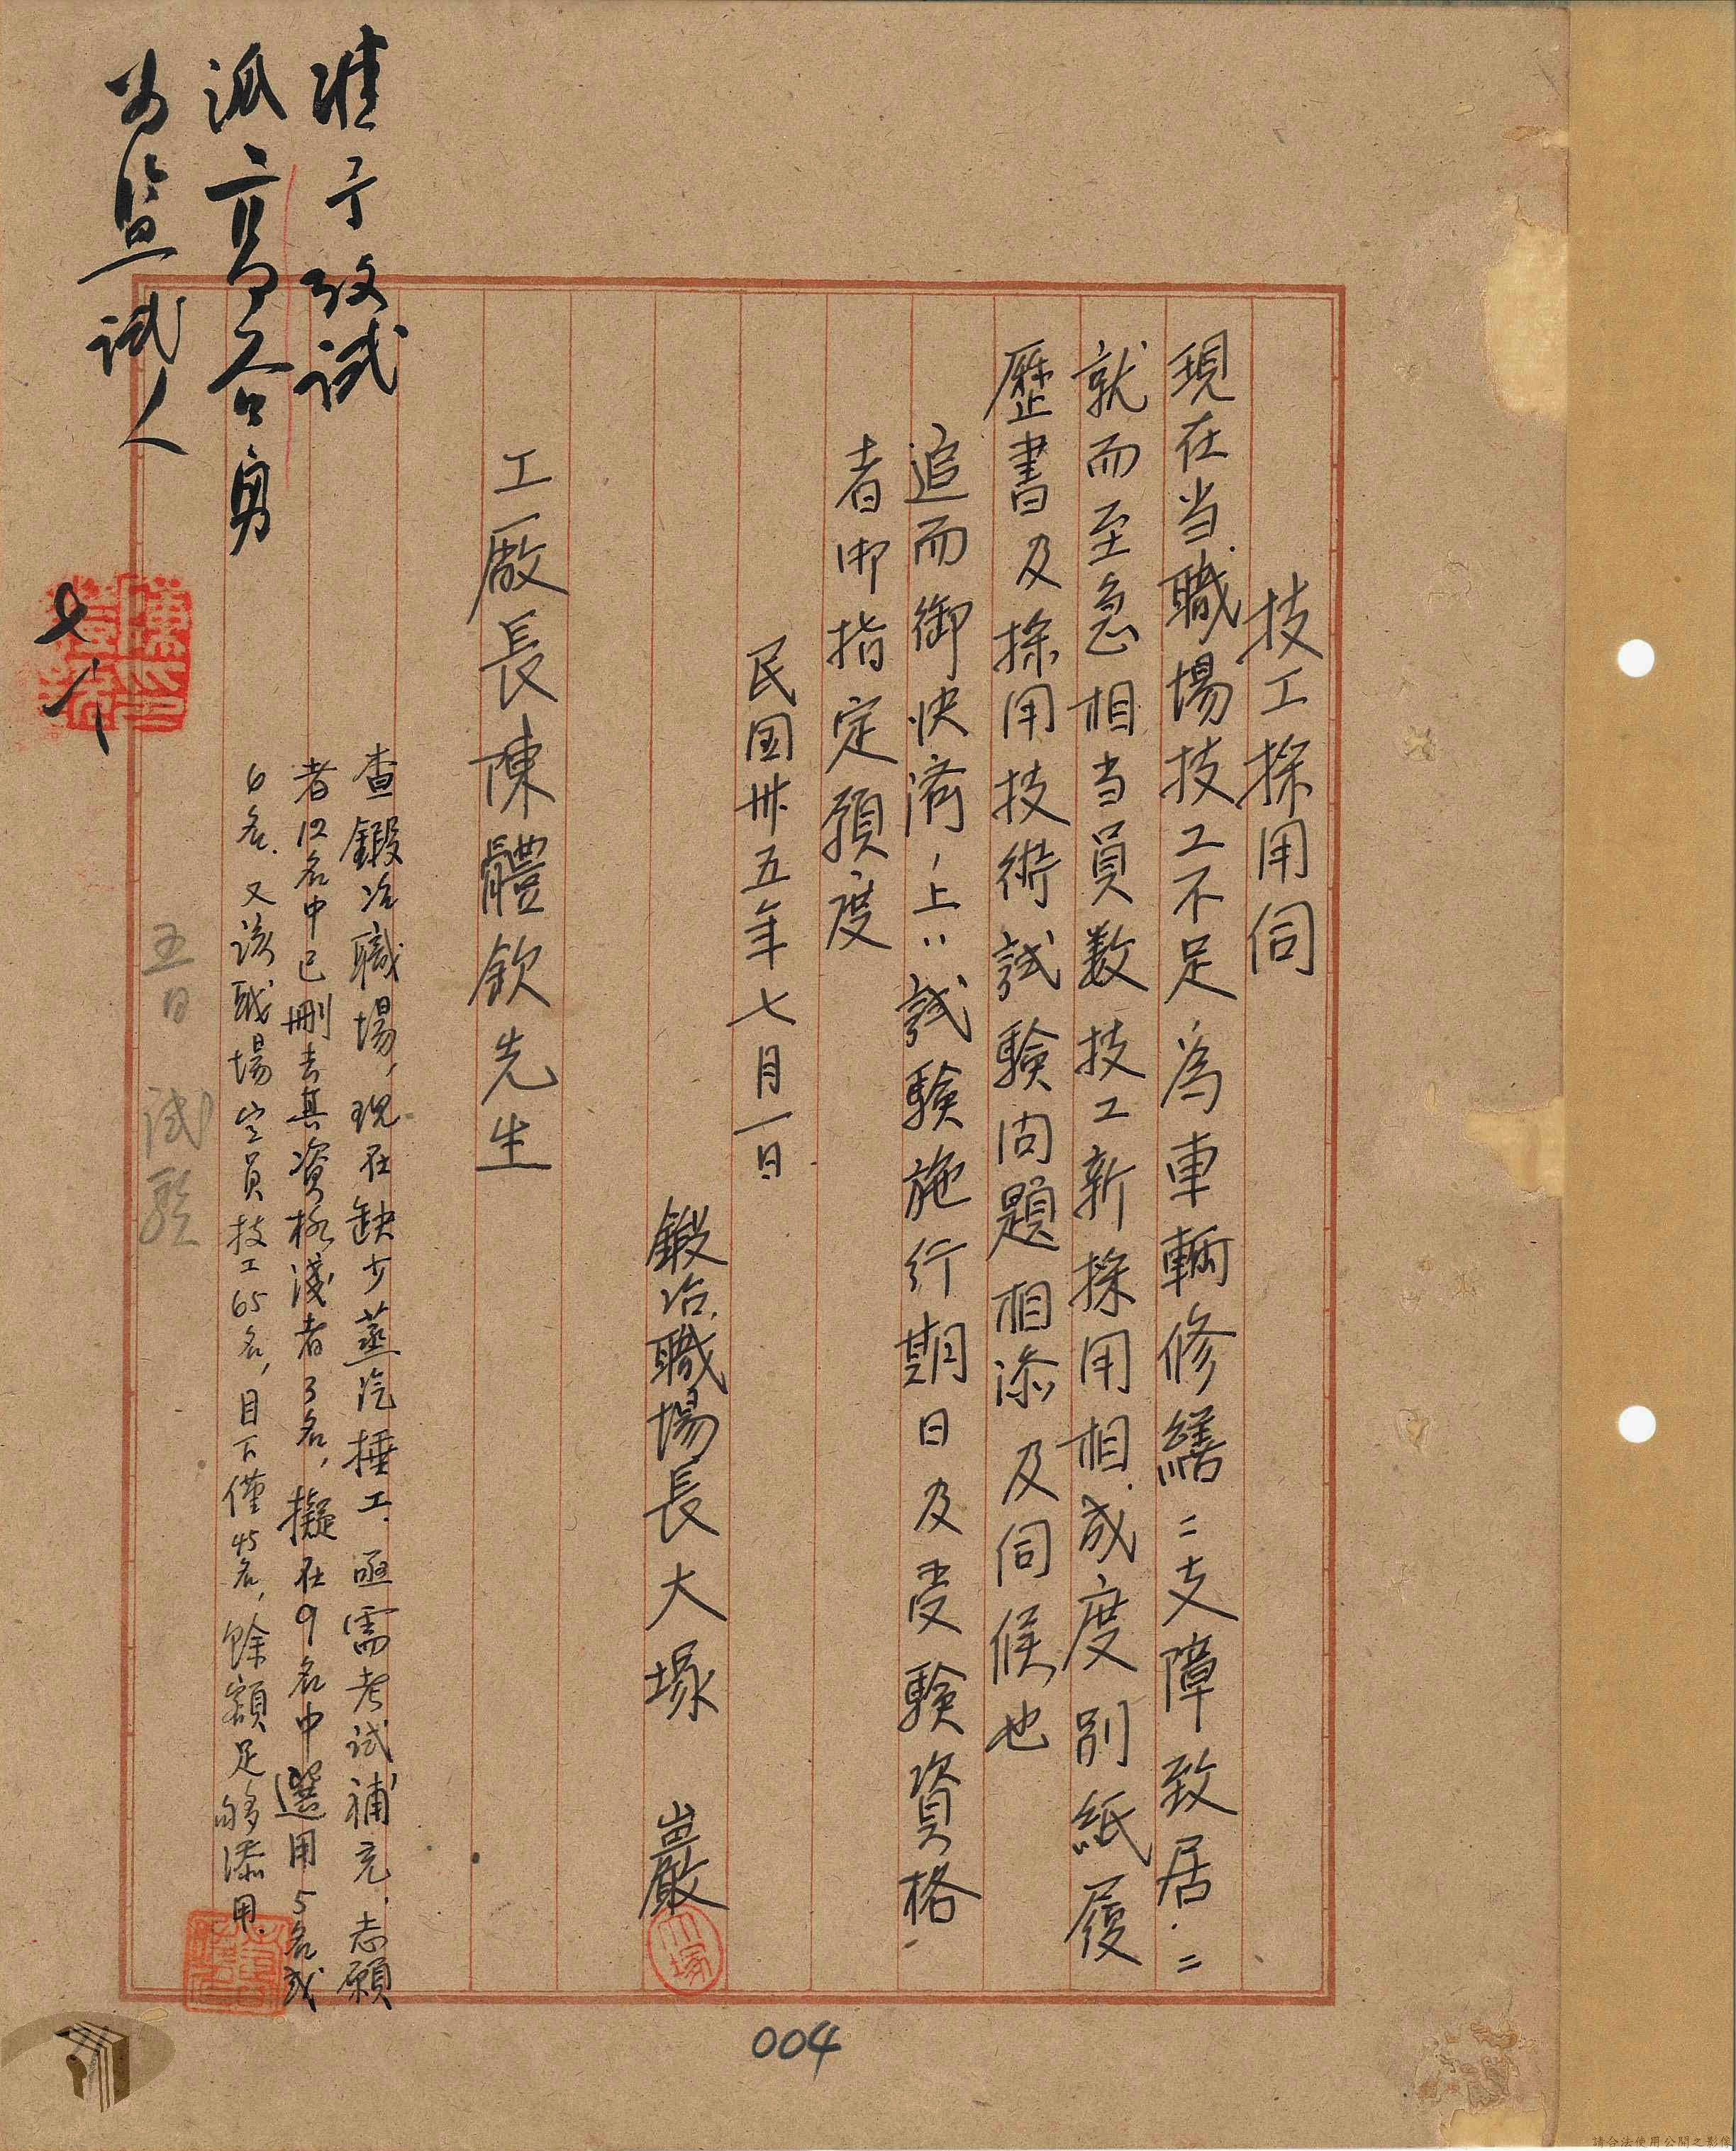 技工採用伺
現在当職場技工不足為車輛修繕ニ支障致居ニ
就而至急相当員数技工新採用相成度別紙履
歷書及採用技術試験問題相添及伺候也
追而御快済ノ上ハ試験施行期日及受験資格
者御指定願度
民国卅五年七月一日
鍛冶職場長大塚 巖
大塚
工廠長陳體欽先生
查鍛冶職場,現在缺少蒸汽捶工.亟需考試補充.志願
者12名中已刪去其資格淺者3名,擬在9名中選用5名或
6名.又該職場定員技工65名,目下僅45名,餘額足够添用.
五日 試驗
准予攷試
派高合勇
為監試人
七八
004
請合法使用公開之影像